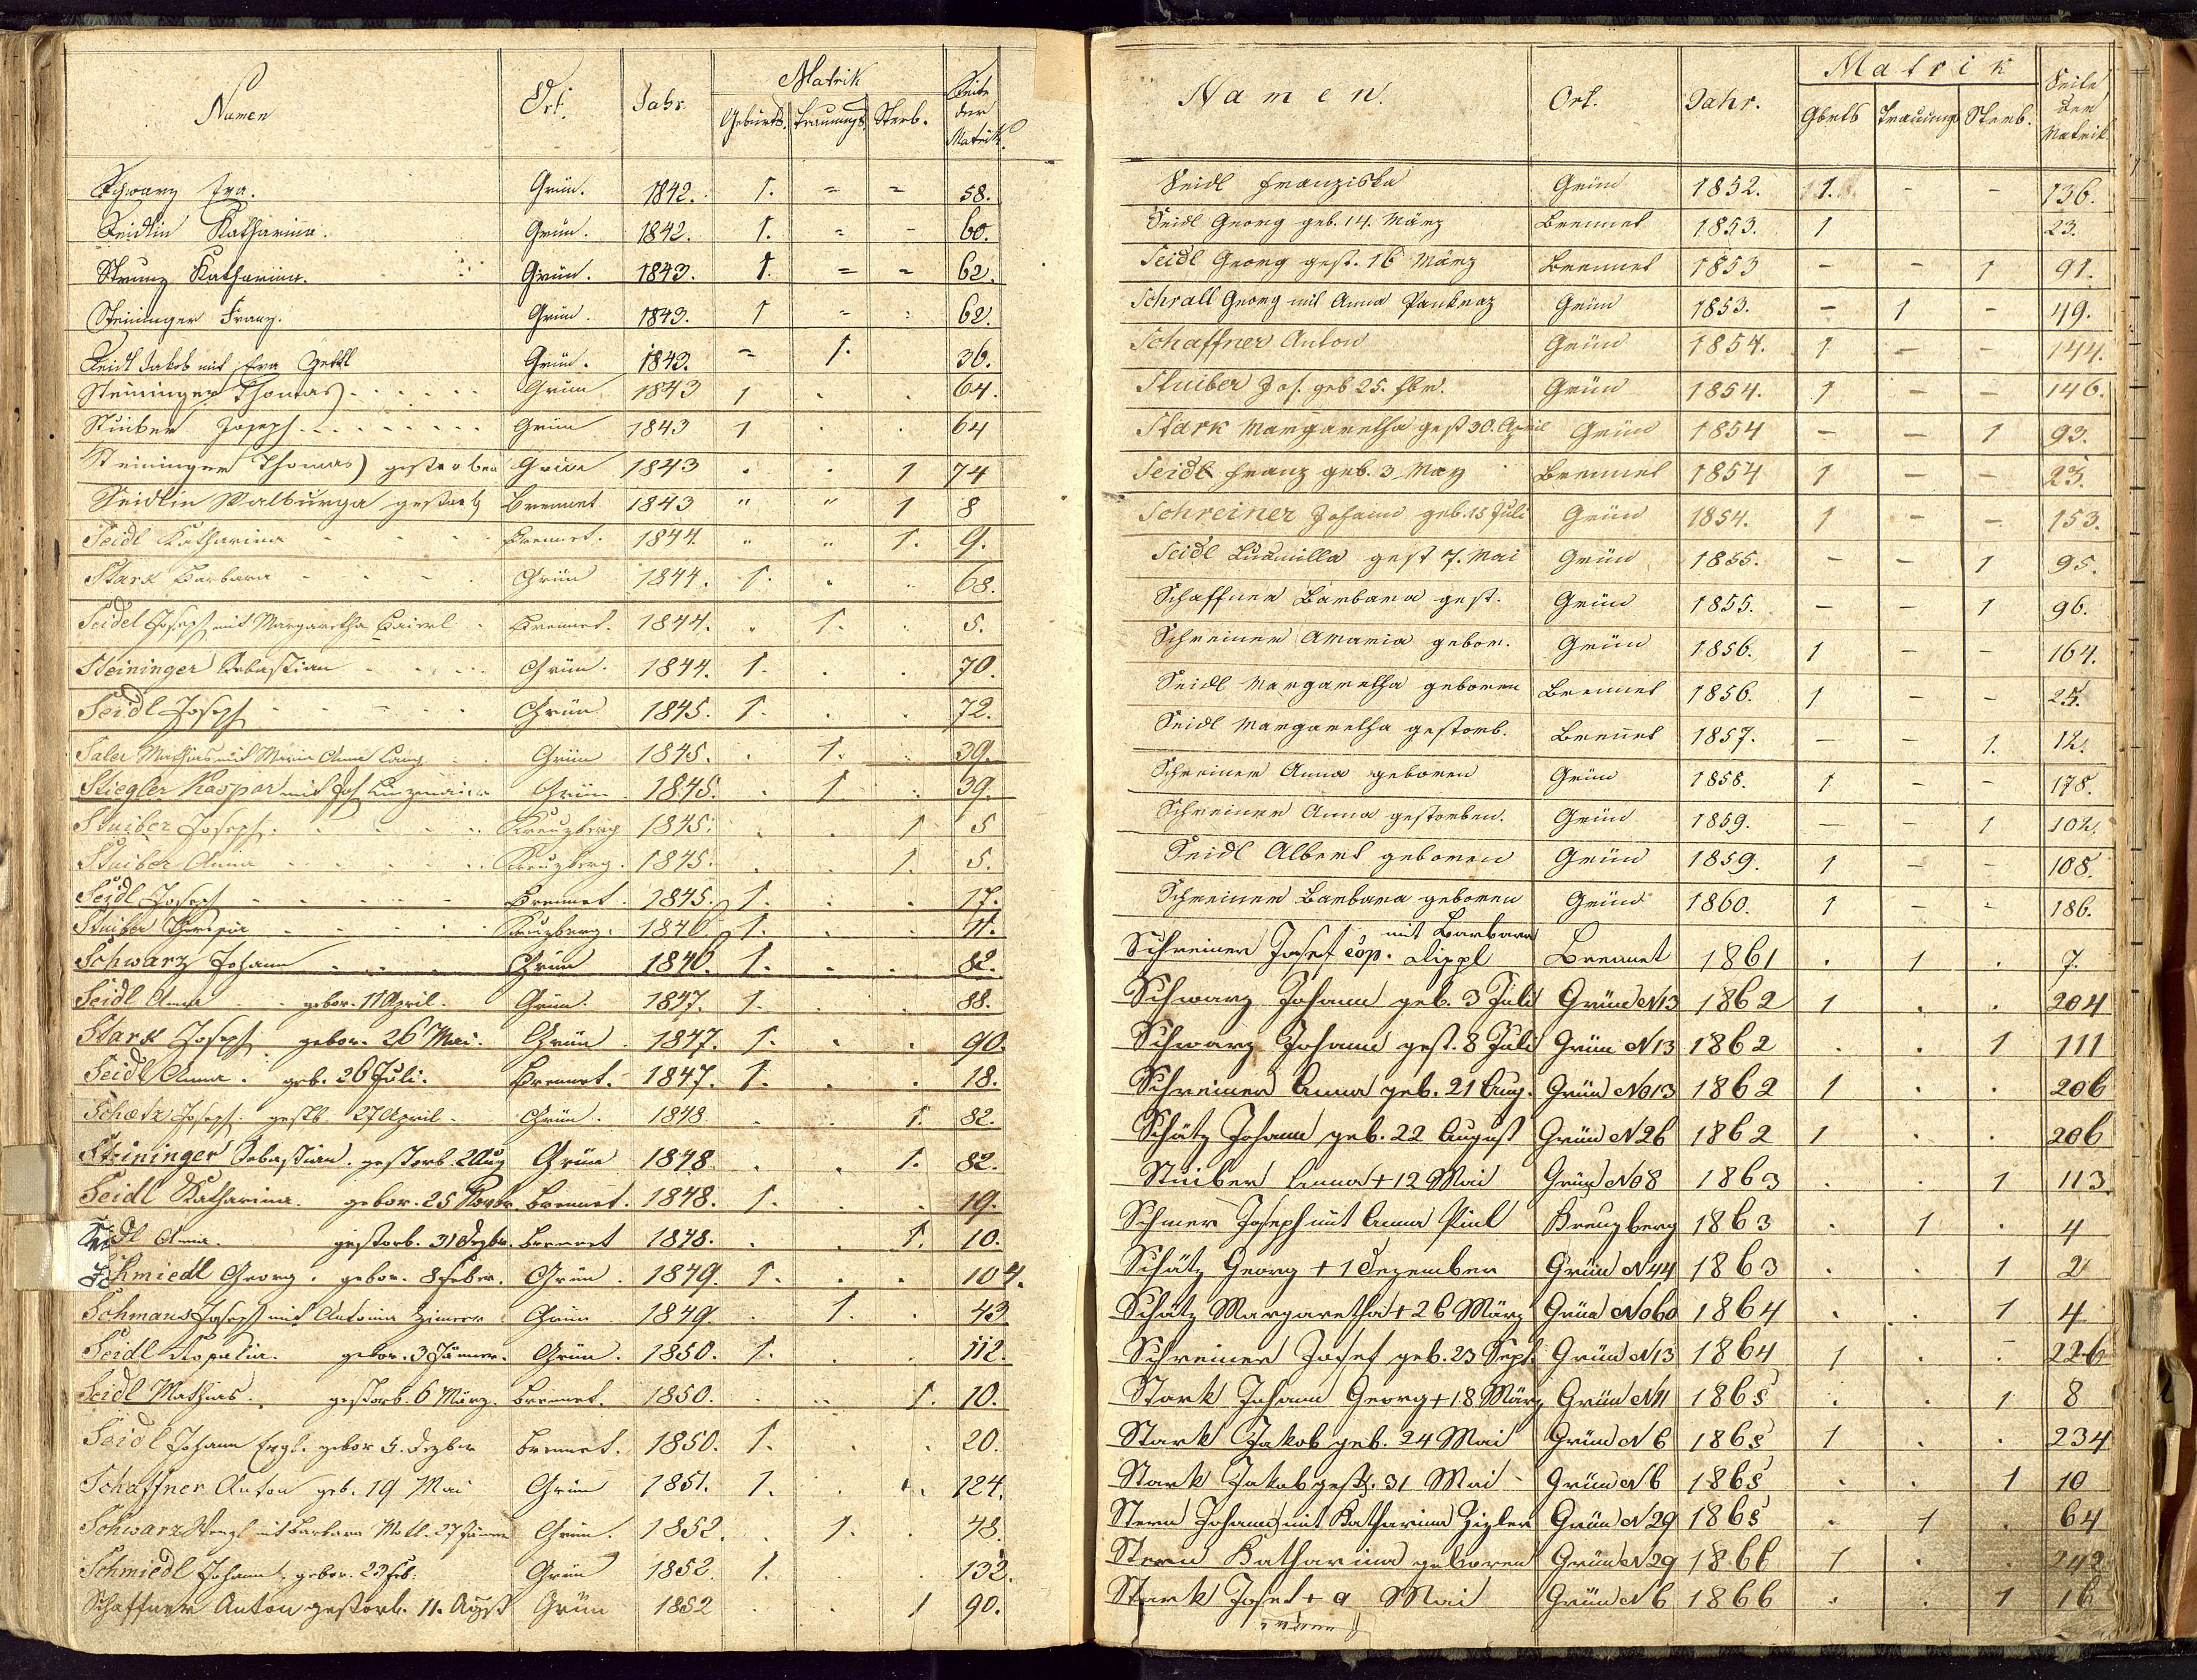 Namen Ort. Jahr. Matrik Seite der Matrik.
Geburts. Trauungs Sterb.
Schwarz Eva. Grün. 1842. 1. = = 58.
Seidlin Katharina. Grün. 1842. 1. = - 60.
Strunz Katharina. Grün. 1843. 1. = = 62.
Steininger Franz. Grün. 1843. 1 = : 62.
Seidl Jakob mit Eva Grün. 1843. = 1. 36.
Steininger Thomas Grün 1843 1 . . 64.
Stuiber Joseph Grün 1843 1 . . 64
Steininger Thomas gestorben Grün 1843 . . 1 74
Seidlin Walburga gestorb Brennet 1843 " " 1 8
Seidl Katharina Brennet. 1844. " " 1. 9.
Stark Barbara Grün 1844. 1. . .. 68.
Seidel Joseph mit Margaretha Baierl Brennet. 1844. . 1. . 5.
Steininger Sebastian Grün. 1844. 1. . . 70.
Seidl Joseph Grün 1845. 1. . . 72.
Saler Mathias mit Maria Anna Lang Grün 1845. . 1. . 39.
Stiegler Kaspar mit Grün 1845. . 1. . 39.
Stuiber Joseph Kreuzberg 1845. . . 1 5
Stuiber Anna Kreuzberg. 1845. . . 1. 5.
Seidl Joseph Brennet. 1845. 1. . . 17.
Stuiber Theresia Kreuzberg. 1846. 1. . . 11.
Schwarz Johann Grün 1846. 1. . . 82.
Seidl Anna gebor. 11 April. Grün. 1847. 1. . . 88.
Stark Joseph gebor. 26 Mai. Grün 1847. 1. . . 90.
Seidl Anna. geb. 26 Juli. Brennet. 1847. 1. . . 18.
Schætz Joseph gestb. 27 April Grün. 1848 . . 1. 82.
Steininger Sebastian. gestorb. 2 Aug Grün 1848 . . 1. 82.
Seidl Katharina. gebor. 25 Novbr. Brennet. 1848. 1. . . 19.
Seidl Anna. gestorb. 31 Dezbr. Brennet 1848. . . 1. 10.
Schmiedl Georg. gebor. 8 Feber. Grün. 1849. 1. . . 104.
Schmaus Joseph mit Antonia Grün 1849. . 1. . 43
Seidl Rosalia. gebor. 3 Jänner. Grün. 1850. 1. . . 112.
Seidl Mathias. gestorb. 6 März. Brennet. 1850. . .. 1. 10.
Seidl Johann Engl. gebor 5. Dezber Brennet. 1850. 1. . . 20.
Schaffner Anton geb. 19 Mai Grün 1851. 1. . . 124.
Schwarz Wenzl mit Barbara 27 Jänner Grün. 1852. . 1. . 48.
Schmiedl Johann gebor. 23 Feb. Grün 1852. 1. . . 132.
Schaffner Anton gestorb. 11. Augst Grün 1852 . . 1 90.
Namen. Ort. Jahr. Matrik Seite der Matrik
Gbrts Trauung Sterb.
Seidl Franziska Grün 1852. 1. - - 136.
Seidl Georg geb. 14. März Brennet 1853. 1 23.
Seidl Georg gest. 16 März Brennet 1853 - - 1 91.
Schrall Georg mit Anna Pankraz Grün 1853. - 1 - 49.
Schaffner Anton Grün 1854. 1 - - 144.
Stuiber Jos. geb 25. Grün 1854. 1 - - 146.
Stark Margaretha gest 30. April Grün 1854 - - 1 93.
Seidl Franz geb. 3 May Brennet 1854 1 - - 23.
Schreiner Johann geb. 15 Juli Grün 1854. 1 - - 153.
Seidl Ludmilla gest 7. Mai Grün 1855. - - 1 95.
Schaffner Barbara gest. Grün 1855. - - 1 96.
Schreiner Maria gebor. Grün 1856. 1 - - 164.
Seidl Margaretha geboren Brennet 1856. 1 - - 24.
Seidl Margaretha gestorb. Brennet 1857. - - 1. 12.
Schreiner Anna geboren Grün 1858. 1 - - 178.
Schreiner Anna gestorben. Grün 1859. - - 1 102.
Seidl Albert geboren Grün 1859. 1 - - 108.
Schreiner Barbara geboren Grün 1860. 1 - - 186.
mit Barbara
Schreiner Josef cop. Lippl Brennet 1861 . 1 . 7.
Schwarz Johann geb. 3 Juli Grün N13 1862 1 . . 204
Schwarz Johann gest. 8 Juli Grün N13 1862 . . 1 111
Schreiner Anna geb. 21 Aug. Grün No13 1862 1 . . 206
Schätz Johann geb. 22 August Grün N26 1862 1 . . 206
Stuiber Anna + 12 Mai Grün No8 1863 . . 1 113.
Schmer Joseph mit Anna Pinl Kreuzberg 1863 . 1 . 4
Schätz Georg + 1 Dezember Grün N44 1863 . . 1 2
Schätz Margaretha + 26 März Grün No60 1864 . . 1 4
Schreiner Josef geb. 23 Sept. Grün N13 1864 1 . - 226
Stark Johann Georg + 18 März Grün N11 1865 . . 1 8
Stark Jakob geb. 24 Mai Grün N6 1865 1 . . 234
Stark Jakob gest. 31 Mai Grün N6 1865 . . 1 10
Stern Johann mit Katharina Zigler Grün N29 1865 . 1 . 64
Stern Katharina geboren Grün N29 1866 1 . . 242
Stark Josef + 9 Mai Grün N6 1866 . . 1 16